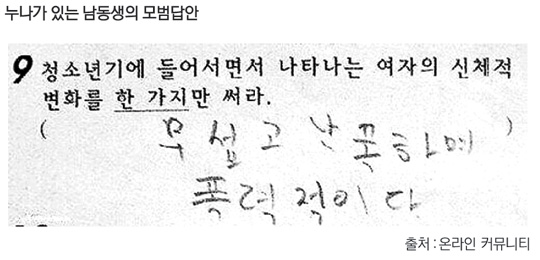 누나가 있는 남동생의 모범답안
9 청소년기에 들어서면서 나타나는 여자의 신체적
변화를 한 가지만 써라.
( 무섭고 난폭하며 )
폭력적이다
출처 : 온라인 커뮤니티